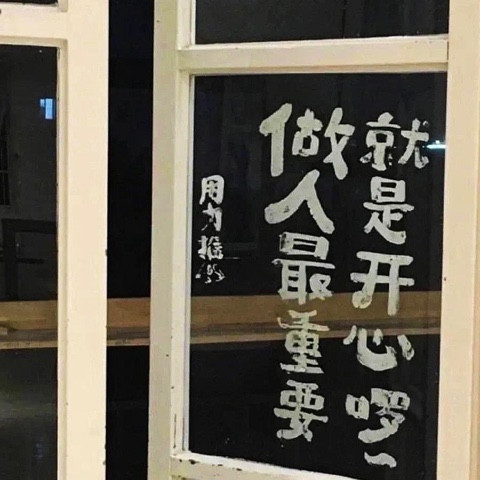 做人最重要
就是开心啰~
用力